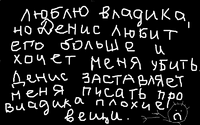 люблю владика,
но Денис любит
его больше и
хочет меня убить.
Денис заставляет
меня писать про
владика плохие
вещи.